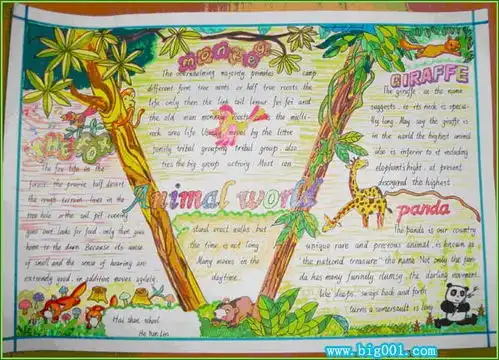 monkey
The overwhelming majority primates camp
different form tree ants or half tree roosts the
life only then the link tail lemur fei fei and
the old man monkey roosts in the middle
rock area life Usually move by the letter
family tribal grouping tribal group, also
ties the big group activity Most can
stand erect walks but
the time is not long
Many moves in the
daytime.
THE FOX
The fox life in the
forest, the prairie, half desert,
the rough terrain, lives in the
tree hole or the soil pit cunning
goes out looks for food, only then goes
home to the dawn Because its sense
of smell and the sense of hearing are
extremely good, in addition moves agilely,
Animal world
GIRAFFE
The giraffe, as the name
suggests, is its neck is specia-
lly long. May say the giraffe is
in the world the highest animal
also is inferior to it including
elephant's hight, at present
discovered the highest
panda
The panda is our country
unique rare and precious animal, is known as
"the national treasure" the name. Not only the pan-
da has many funnily clumsy, the darling movement,
like sleeps, sways back and forth
turns a somersault is long
Hai shan school
He Nan Lin
www.big001.com